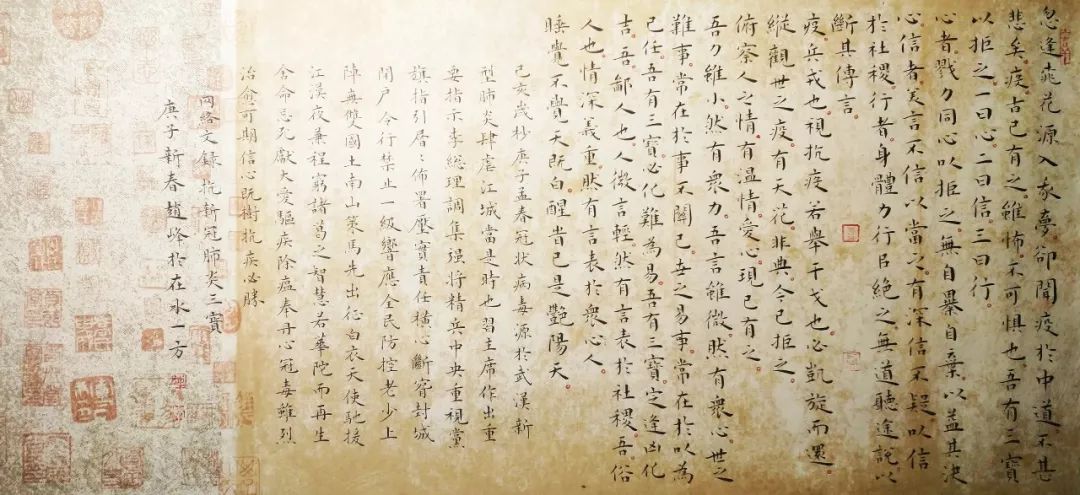 忽逢桃花源入我夢卻聞疫於中道不甚
悲矣。疫古已有之。雖怖不可懼也。吾有三寶
以拒之。一曰心。二曰信。三曰行。
心者。戮力同心以拒之。無自暴自棄以益其決
心。信者。美言不信以當之。有深信不疑以信
於社稷。行者。身體力行臣絕之。無道聽途說以
斷其傳言。
疫兵戎也。視抗疫若舉干戈也。必凱旋而還。
縱觀世之疫。有天花。非典。今已拒之。
俯察人之情。有溫情愛心。現已有之。
吾力雖小。然有衆力。吾言雖微。然有衆心。世之
難事。常在於事不關己。世之易事。常在於以為
己任。吾有三寶。必化難為易。吾有三寶。定逢凶化
吉。吾鄙人也。人微言輕。然有言表於社稷。吾俗
人也。情深義重。然有言表於衆心人
睡覺不覺天既白。醒者已是艷陽天。
己亥歲杪庚子孟春冠狀病毒源於武漢新
型肺炎肆虐江城當是時也習主席作出重
要指示李總理調集强將精兵中央重視黨
旗指引層〻佈署壓實責任橫心斷封城
閉戶令行禁止一級響應全民防控老少上
陣無雙國士南山策馬先出征白衣天使馳援
江漢夜兼程窮諸葛之智慧若華陀而再生
舍命忘死獻大愛驅疾除瘟奉丹心冠毒雖烈
治俞可期信心既樹抗疾必勝
网絡文錄抗新冠肺炎三寶
庚子新春趙峰於在水一方